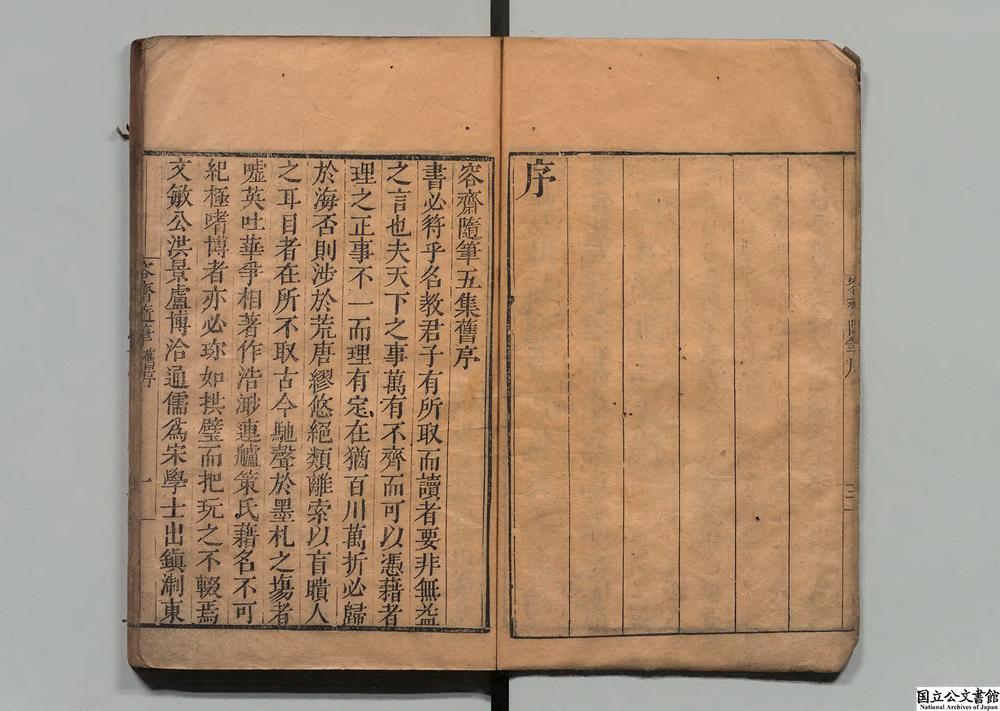 序
容齋隨筆五集舊序
書必符乎名教君子有所取而讀者要非無益
之言也夫天下之事萬有不齊而可以憑藉者
理之正事不一而理有定在猶百川萬折必歸
於海否則涉於荒唐繆悠絕類離索以盲聵人
之耳目者在所不取古今馳聲於墨札之場者
噓英吐華爭相著作浩渺連艫策氏藉名不可
紀極嗜博者亦必珎如拱璧而把玩之不輟焉
文敏公洪景盧博洽通儒為宋學士出鎮淛東
容齋隨筆 舊序
一
国立公文書館
National Archives of Japan